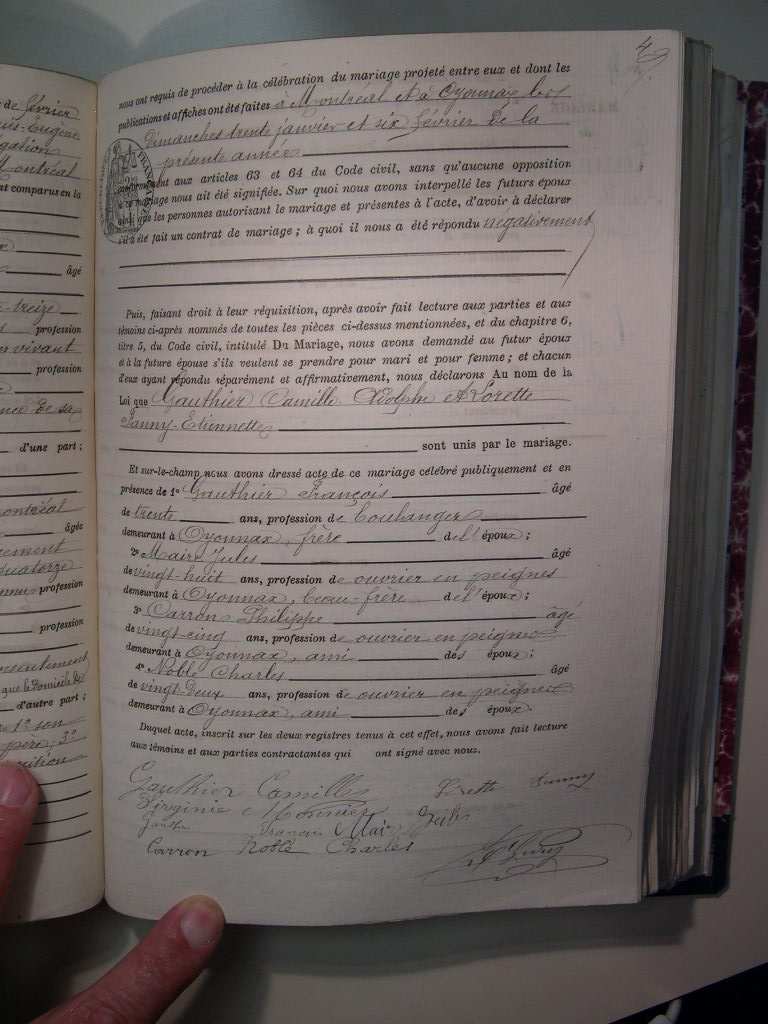 de février
gation
Montréal
nt comparus en la
âgé
treize
profession
vivant
profession
d'une part ;
ontréal
âgée
quatorze
profession
profession
d'autre part ;
1º son
père, 3º
4
nous ont requis de procéder à la célébration du mariage projeté entre eux et dont les
publications et affiches ont été faites à Montréal et à Oyonnax les
Dimanches trente janvier et six février de la
présente année
aux articles 63 et 64 du Code civil, sans qu'aucune opposition
mariage nous ait été signifiée. Sur quoi nous avons interpellé les futurs époux
que les personnes autorisant le mariage et présentes à l'acte, d'avoir à déclarer
s'il a été fait un contrat de mariage ; à quoi il nous a été répondu négativement
Puis, faisant droit à leur réquisition, après avoir fait lecture aux parties et aux
témoins ci-après nommés de toutes les pièces ci-dessus mentionnées, et du chapitre 6,
titre 5, du Code civil, intitulé Du Mariage, nous avons demandé au futur époux
et à la future épouse s'ils veulent se prendre pour mari et pour femme ; et chacun
d'eux ayant répondu séparément et affirmativement, nous déclarons Au nom de la
Loi que Gauthier Camille Adolphe et Lorette
Fanny-Etiennette
sont unis par le mariage.
Et sur-le-champ nous avons dressé acte de ce mariage célébré publiquement et en
présence de 1º Gauthier François âgé
de trente ans, profession de boulanger
demeurant à Oyonnax, frère de l'époux ;
2º Maire Jules âgé
de vingt-huit ans, profession de ouvrier en peignes
demeurant à Oyonnax, beau-frère de l'époux ;
3º Carron Philippe âgé
de vingt-cinq ans, profession de ouvrier en peignes
demeurant à Oyonnax, ami des époux ;
4º Noble Charles âgé
de vingt-deux ans, profession de ouvrier en peignes
demeurant à Oyonnax, ami des époux.
Duquel acte, inscrit sur les deux registres tenus à cet effet, nous avons fait lecture
aux témoins et aux parties contractantes qui ont signé avec nous.
Gauthier Camille Lorette Fanny
Virginie Monnier
François Jules
Carron Noble Charles